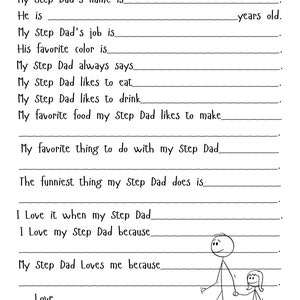 My Step Dad's name is
He is years old.
My Step Dad's job is
His favorite color is
My Step Dad always says
My Step Dad likes to eat
My Step Dad likes to drink
My favorite food my Step Dad likes to make
My favorite thing to do with my Step Dad
The funniest thing my Step Dad does is
I Love it when my Step Dad
I Love my Step Dad because
My Step Dad Loves me because
Love